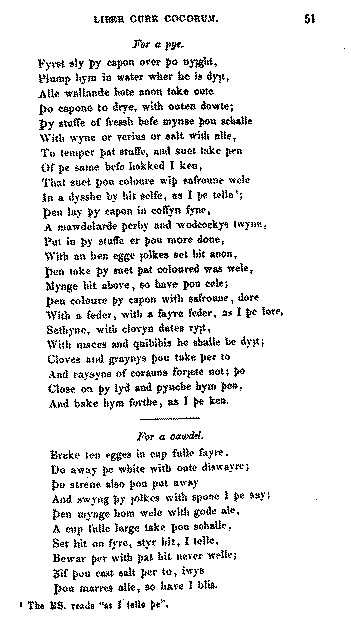 LIBER CURE COCORUM. 51
For a pye.
Fyrst sly þy capon over þo nyȝht,
Plump hym in water wher he is dyȝt,
Alle wallande hote anon take oute
Þo capone to drye, with outen dowte;
Þy stuffe of fressh befe mynse þou schalle
With wyne or verius or salt with alle,
To temper þat stuffe, and suet take þen
Of þe same befe hakked I ken,
That suet þou coloure wiþ safroune wele
In a dysshe by hit selfe, as I þe telle¹;
Þen lay þy capon in coffyn fyne,
A mawdelarde þerby and wodcockys twyne,
Put in þy stuffe er þou more done,
With an hen egge ȝolkes set hit anon,
Þen take þy suet þat coloured was wele,
Mynge hit above, so have þou cele;
Þen coloure þy capon with safroune, dore
With a feder, with a fayre feder, as I þe lore,
Sethyne, with clovyn dates ryȝt,
With maces and quibibis he shalle be dyȝt;
Cloves and graynys þou take þer to
And raysyns of corauns forȝete not; þo
Close on þy lyd and pynche hym þen,
And bake hym forthe, as I þe ken.
For a cawdel.
Breke ten egges in cup fulle fayre.
Do away þe white with oute diswayre;
Þo strene also þou put away
And swyng þy ȝolkes with spone I þe say;
Þen mynge hom wele with gode ale,
A cup fulle large take þou schalle,
Set hit on fyre, styr hit, I telle,
Bewar þer with þat hit never welle;
Ȝif þou cast salt þer to, iwys
Þou marres alle, so have I blis.
¹ The MS. reads "as I telle þe".